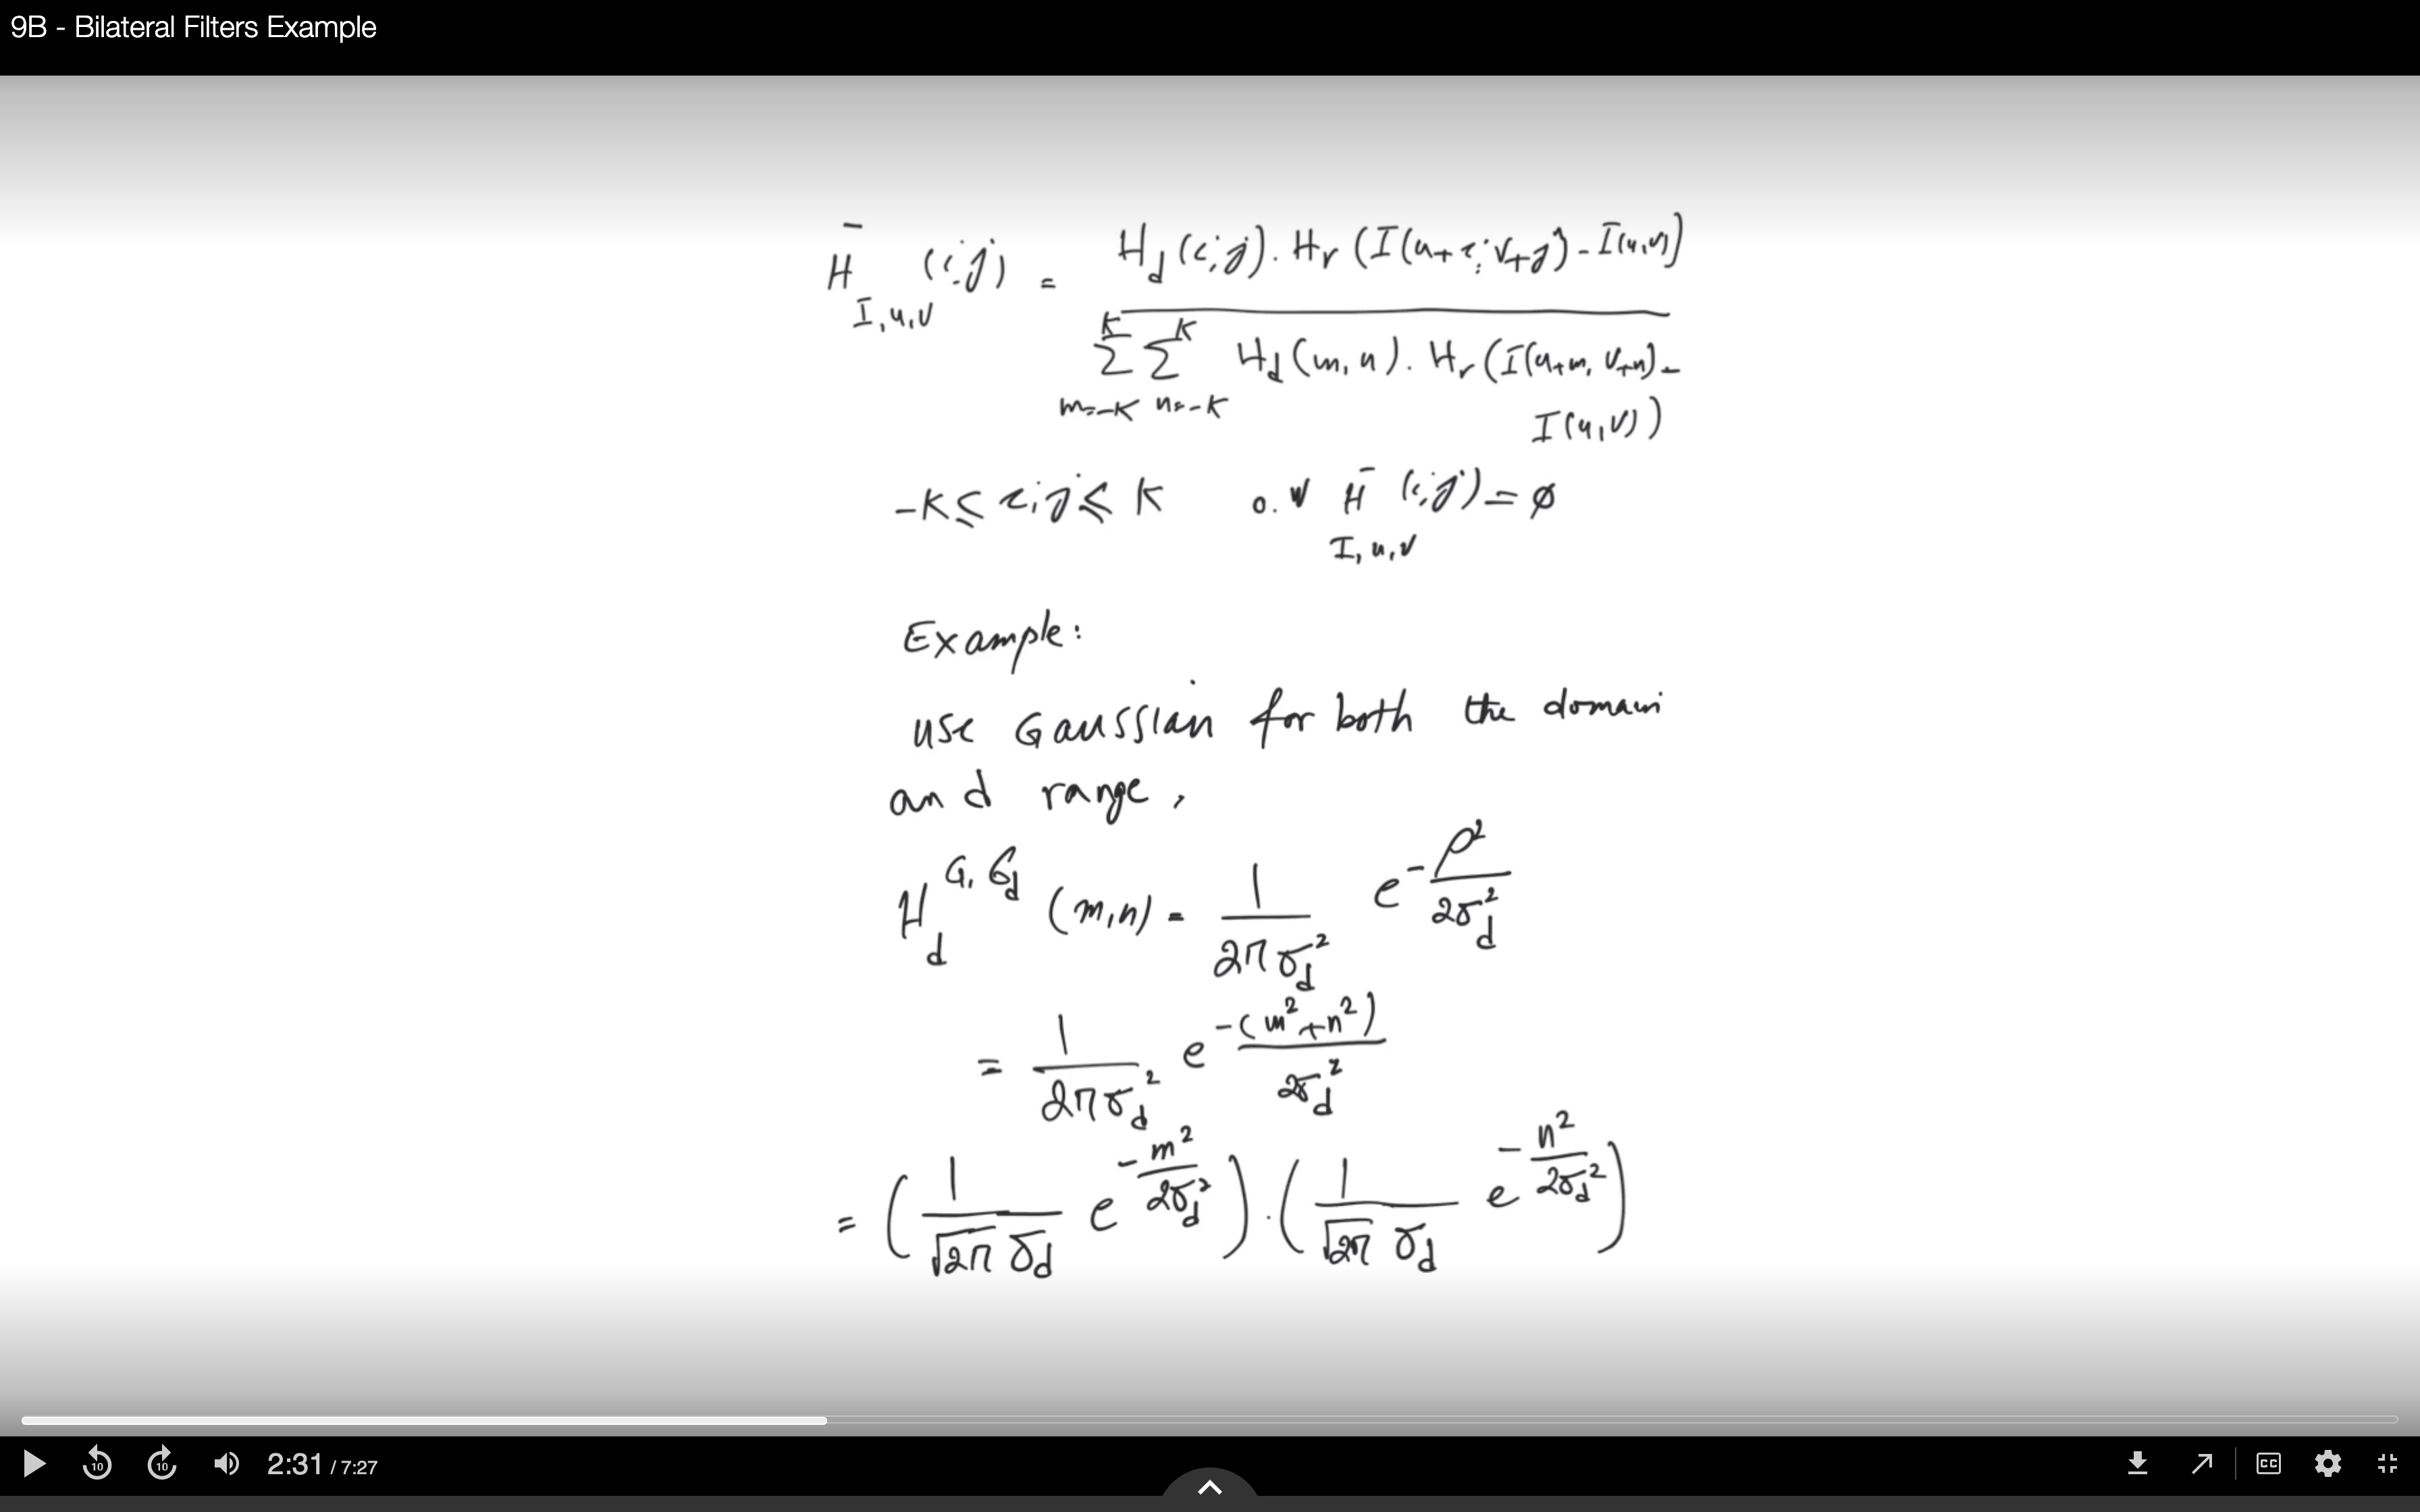 9B - Bilateral Filters Example
H̄_{I,u,v} (i,j) = H_d (i,j) . H_r (I(u+i, v+j) - I(u,v))
/ Σ_{m=-K}^{K} Σ_{n=-K}^{K} H_d (m, n) . H_r (I(u+m, v+n) -
I(u,v))
-K ≤ i,j ≤ K o.w H̄_{I,u,v} (i,j) = ø
Example:
use Gaussian for both the domain
and range,
H_d^{G, σ_d} (m,n) = 1 / (2πσ_d²) e^{-ρ² / 2σ_d²}
= 1 / (2πσ_d²) e^{-(m²+n²) / 2σ_d²}
= (1 / (√2π σ_d) e^{-m² / 2σ_d²}) . (1 / (√2π σ_d) e^{-n² / 2σ_d²})
10 10 2:31 / 7:27 CC